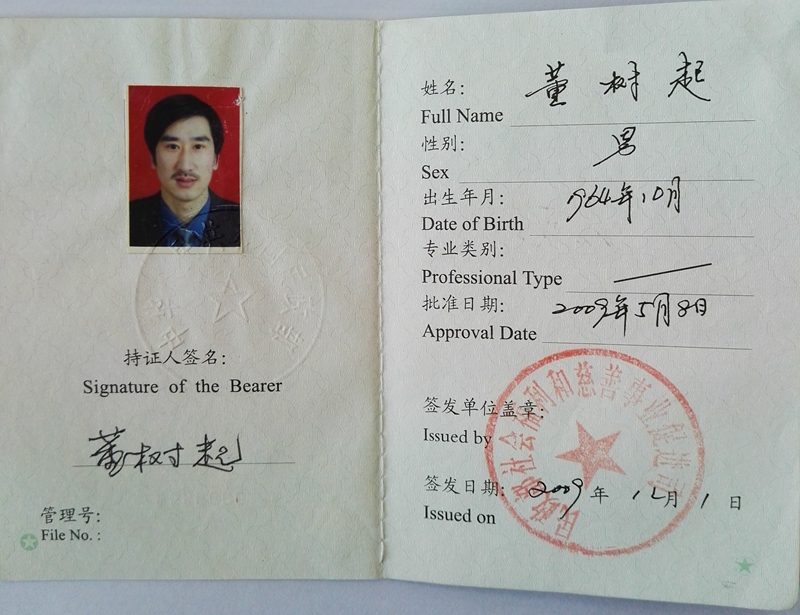 持证人签名:
Signature of the Bearer
董树起
管理号:
File No. :
姓名: 董树起
Full Name
性别: 男
Sex
出生年月: 1964年10月
Date of Birth
专业类别:
Professional Type
批准日期: 2009年5月8日
Approval Date
签发单位盖章:
Issued by
民政部社会福利和慈善事业促进司
签发日期: 2009年12月1日
Issued on